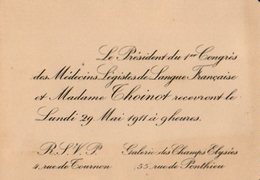 Le Président du 1er Congrès
des Médecins Légistes de Langue Française
et Madame Thoinot recevront le
Lundi 29 Mai 1911 à 9 heures.
R.S.V.P. Galerie des Champs Elysées
4, rue de Tournon 55, rue de Ponthieu